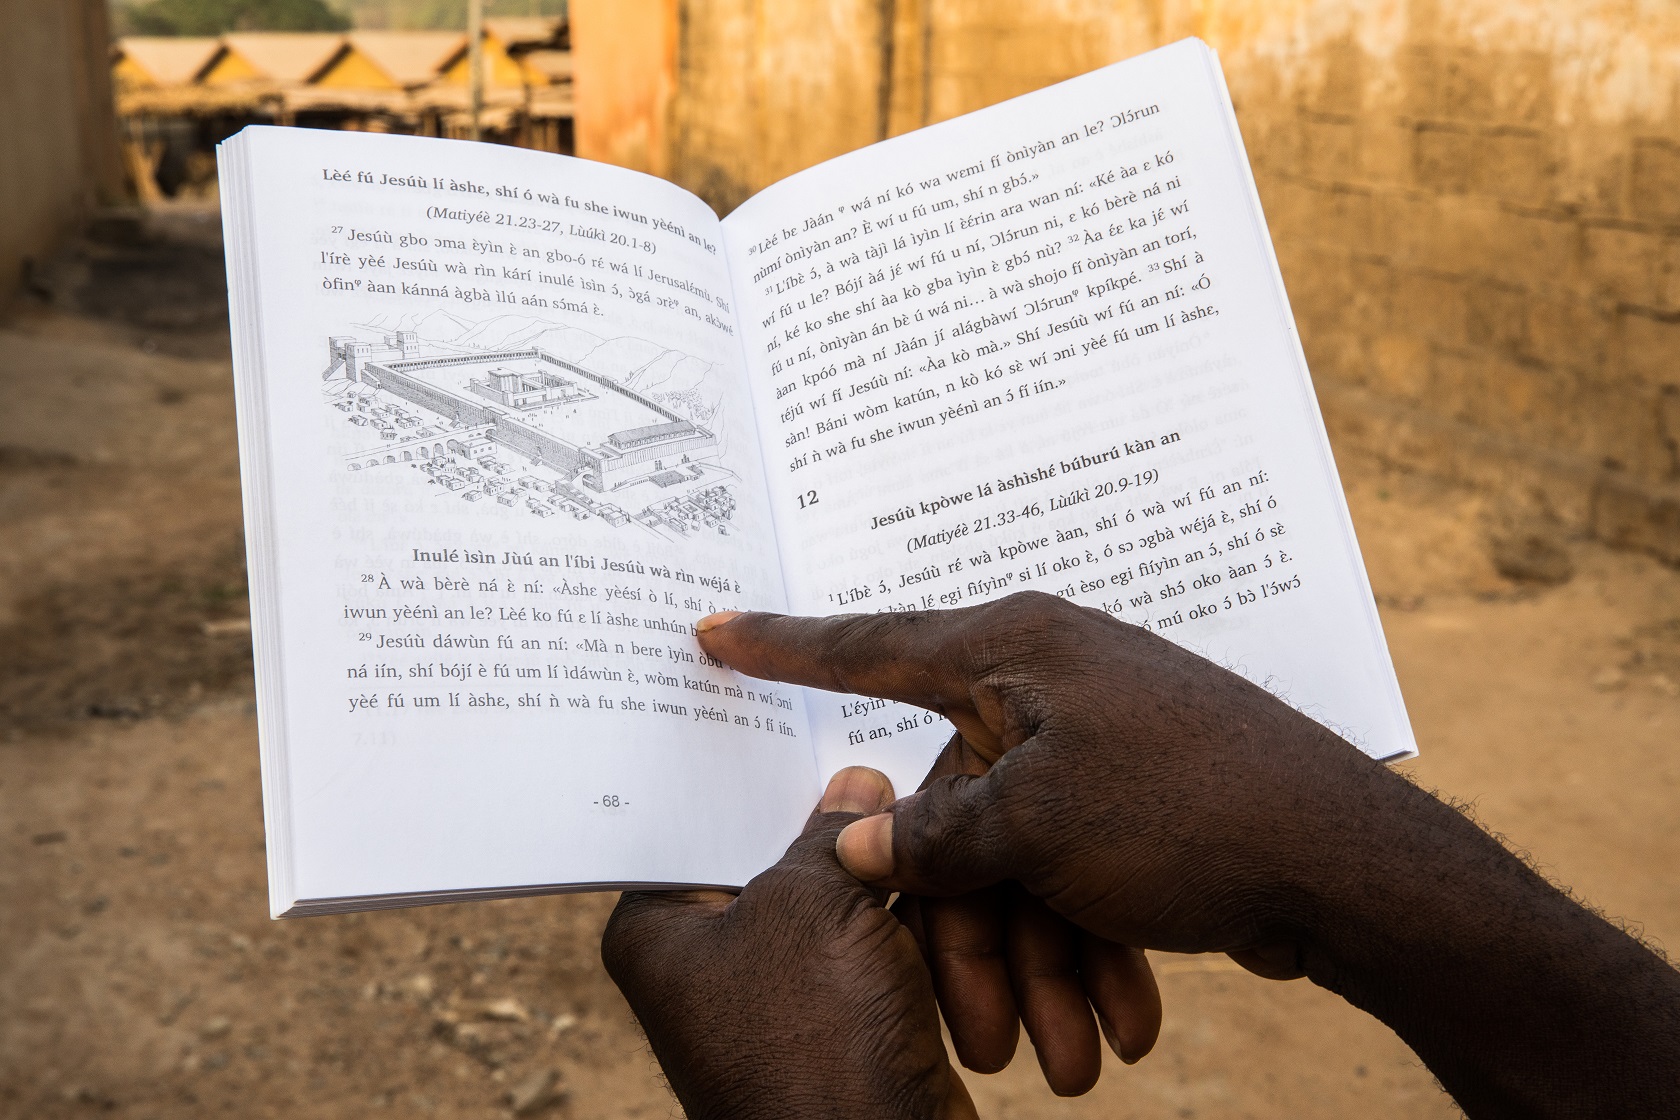 Lèé fú Jesúù lí àshɛ, shí ó wà fu she iwun yèénì an le?
(Matiyéè 21.23-27, Lùúkì 20.1-8)
27 Jesúù gbo ɔma ɛ̀yìn ɛ̀ an gbo-ó rɛ́ wá lí Jerusalémù. Shí
l'írè yèé Jesúù wà rìn kárí inulé ìsìn ɔ́, ɔ̀gá ɔrɛ̀ᵠ an, akɔ̀wé
òfinᵠ àan kánná àgbà ìlú aán sɔ́má ɛ̀.
Inulé ìsìn Jùú an l'íbi Jesúù wà rìn wéjá ɛ̀
28 À wà bèrè ná ɛ̀ ní: «Àshɛ yèésí ò lí, shí ò
iwun yèénì an le? Lèé ko fú ɛ lí àshɛ unhún
29 Jesúù dáwùn fú an ní: «Mà n bere ìyìn
ná iín, shí bójí è fú um lí ìdáwùn ɛ̀, wòm katún mà n wí ɔni
yèé fú um lí àshɛ, shí ǹ wà fu she iwun yèénì an ɔ́ fí iín.
- 68 -
30 Lèé bɛ Jàán ᵠ wá ní kó wa wɛmi fí ònìyàn an le? Ɔlɔ́run
nùmí ònìyàn an? È wí u fú um, shí n gbɔ́.»
31 L'íbɛ̀ ɔ́, à wà tàjì lá ìyìn lí ɛ̀ɛ́rin ara wan ní: «Ké àa ɛ kó
wí fú u le? Bójí àá jɛ́ wí fú u ní, Ɔlɔ́run ni, ɛ kó bèrè ná ni
ní, ké ko she shí àa kò gba ìyìn ɛ̀ gbɔ́ nù? 32 Àa ɛ́ɛ ka jɛ́ wí
fú u ní, ònìyàn án bɛ̀ ú wá ni... à wà shojo fí ònìyàn an torí,
àan kpóó mà ní Jàán jí alágbàwí Ɔlɔ́runᵠ kpíkpé. 33 Shí à
téjú wí fí Jesúù ní: «Àa kò mà.» Shí Jesúù wí fú an ní: «Ó
sàn! Báni wòm katún, n kò kó sɛ̀ wí ɔni yèé fú um lí àshɛ,
shí ǹ wà fu she iwun yèénì an ɔ́ fí iín.»
12
Jesúù kpòwe lá àshìshɛ́ búburú kàn an
(Matiyéè 21.33-46, Lùúkì 20.9-19)
1 L'íbɛ̀ ɔ́, Jesúù rɛ́ wà kpòwe àan, shí ó wà wí fú an ní:
kàn lɛ́ egi fiíyìnᵠ si lí oko ɛ̀, ó sɔ ɔgbà wéjá ɛ̀, shí ó
gú èso egi fiíyìn an ɔ́, shí ó sɛ̀
kó wà shɔ́ oko àan ɔ́ ɛ̀.
mú oko ɔ́ bɔ̀ l'ɔ́wɔ́
L'ɛ́yìn
fú an, shí ó